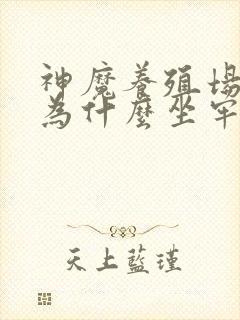 神魔養殖場
為什麼坐牢
天上藍瑾